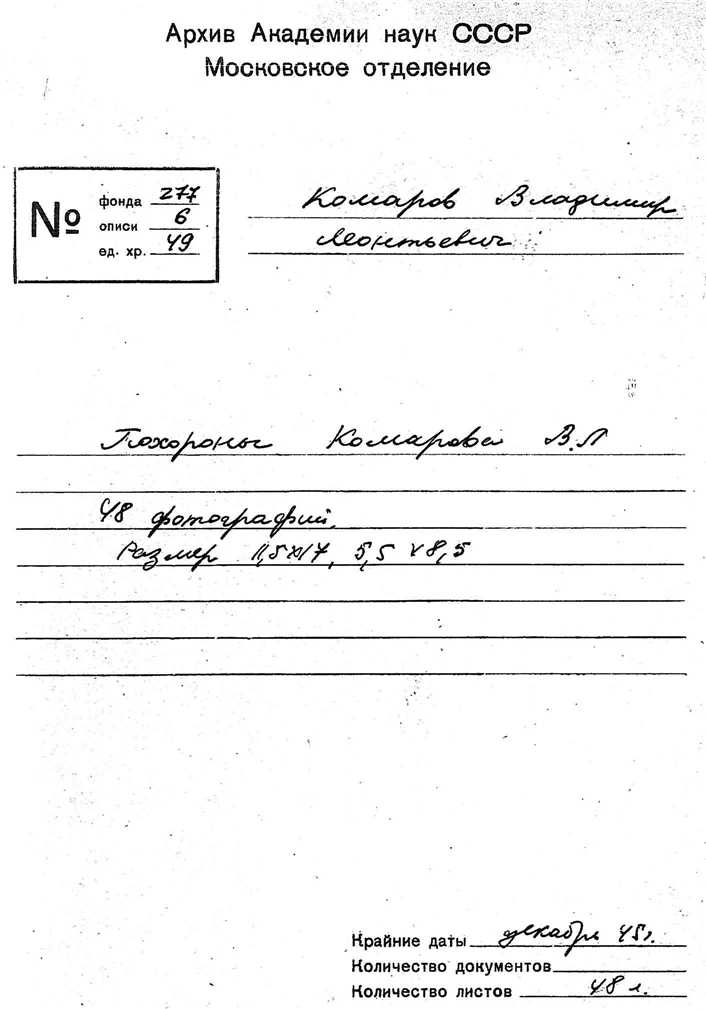 Архив Академии наук СССР
Московское отделение
№
фонда 277
описи 6
ед. хр. 49
Комаров Владимир
Леонтьевич
Похороны Комарова В.Л
48 фотографий.
Размер 11,5х17, 5,5 х 8,5
Крайние даты декабрь 45г.
Количество документов
Количество листов 48 л.